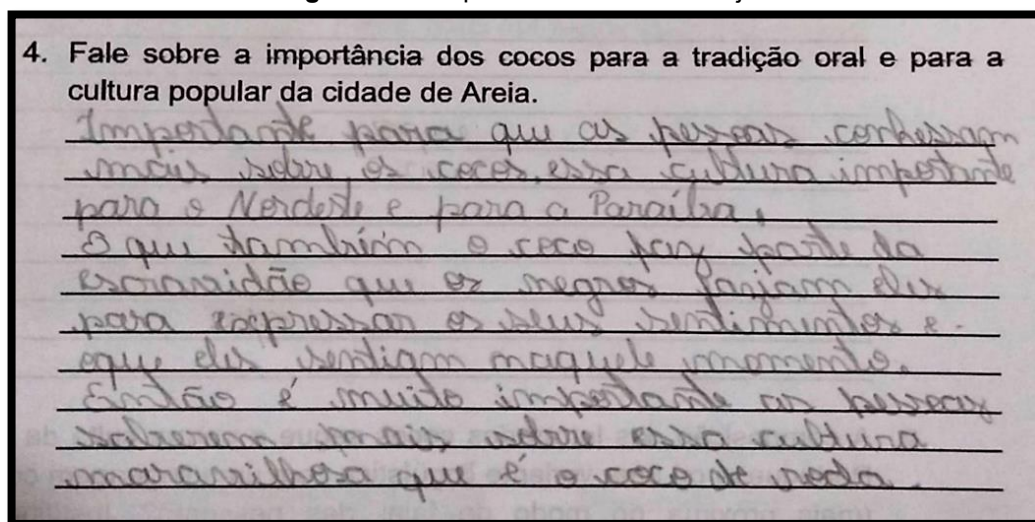 4. Fale sobre a importância dos cocos para a tradição oral e para a
cultura popular da cidade de Areia.
Importante para que as pessoas conhessam
mais sobre, os cocos, essa cultura importante
para o Nordeste e para a Paraíba,
O que também o coco faz parte da
escravidão que os negros faziam eles
para expressar os seus sentimentos e
oque eles sentiam naquele momento.
Então é muito importante as pessoas
saberem mais sobre essa cultura
maravilhosa que é o coco de roda.